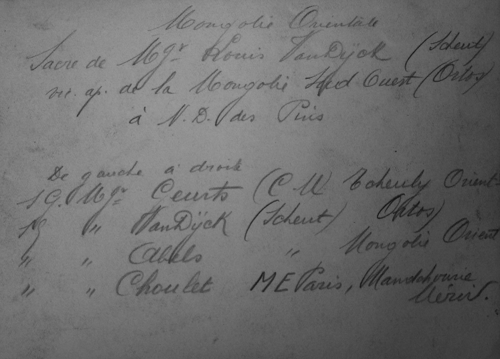 Mongolie Orientale
Sacre de Mgr Louis VanDÿck (Scheut)
vic. ap. de la Mongolie Sud Ouest (Ortos)
à N. D. des Pins
De gauche à droite
S.G. Mgr Geurts (C M Tcheuly Orient
" VanDÿck (Scheut) Ortos)
" " Abels " Mongolie Orient
" " Choulet M E Paris, Mandchourie
Mérid.